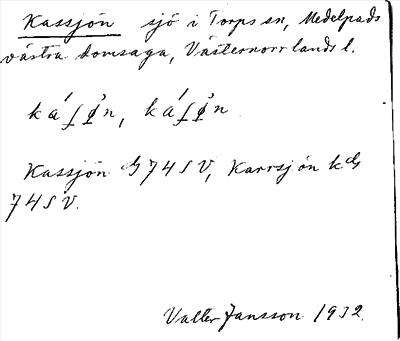 Kassjön sjö i Torps sn, Medelpads
västra domsaga, Västernorrlands l.
Kassjön 74 S V, Karrsjön
74 S V.
Valter Jansson 1932.